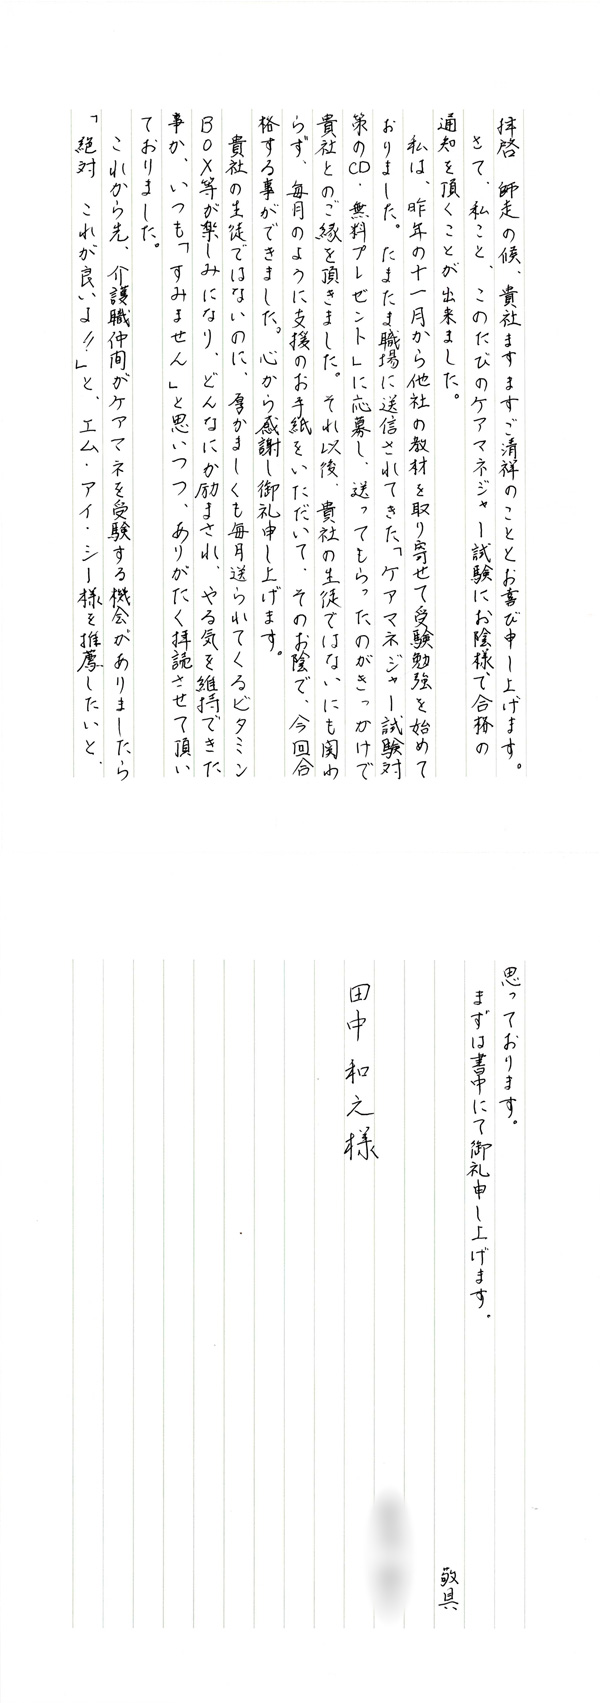 拝啓　師走の候、貴社ますますご清祥のこととお喜び申し上げます。
さて、私こと、このたびのケアマネジャー試験にお陰様で合格の
通知を頂くことが出来ました。
私は、昨年の十一月から他社の教材を取り寄せて受験勉強を始めて
おりました。たまたま職場に送信されてきた「ケアマネジャー試験対
策のCD・無料プレゼント」に応募し、送ってもらったのがきっかけで
貴社とのご縁を頂きました。それ以後、貴社の生徒ではないにも関わ
らず、毎月のように支援のお手紙をいただいて、そのお陰で、今回合
格する事ができました。心から感謝し御礼申し上げます。
貴社の生徒ではないのに、厚かましくも毎月送られてくるビタミン
BOX等が楽しみになり、どんなにか励まされ、やる気を維持できた
事か、いつも「すみません」と思いつつ、ありがたく拝読させて頂い
ておりました。
これから先、介護職仲間がケアマネを受験する機会がありましたら
「絶対　これが良いよ!!」と、エム・アイ・シー様を推薦したいと、
思っております。
まずは書中にて御礼申し上げます。
敬具
田中和之様